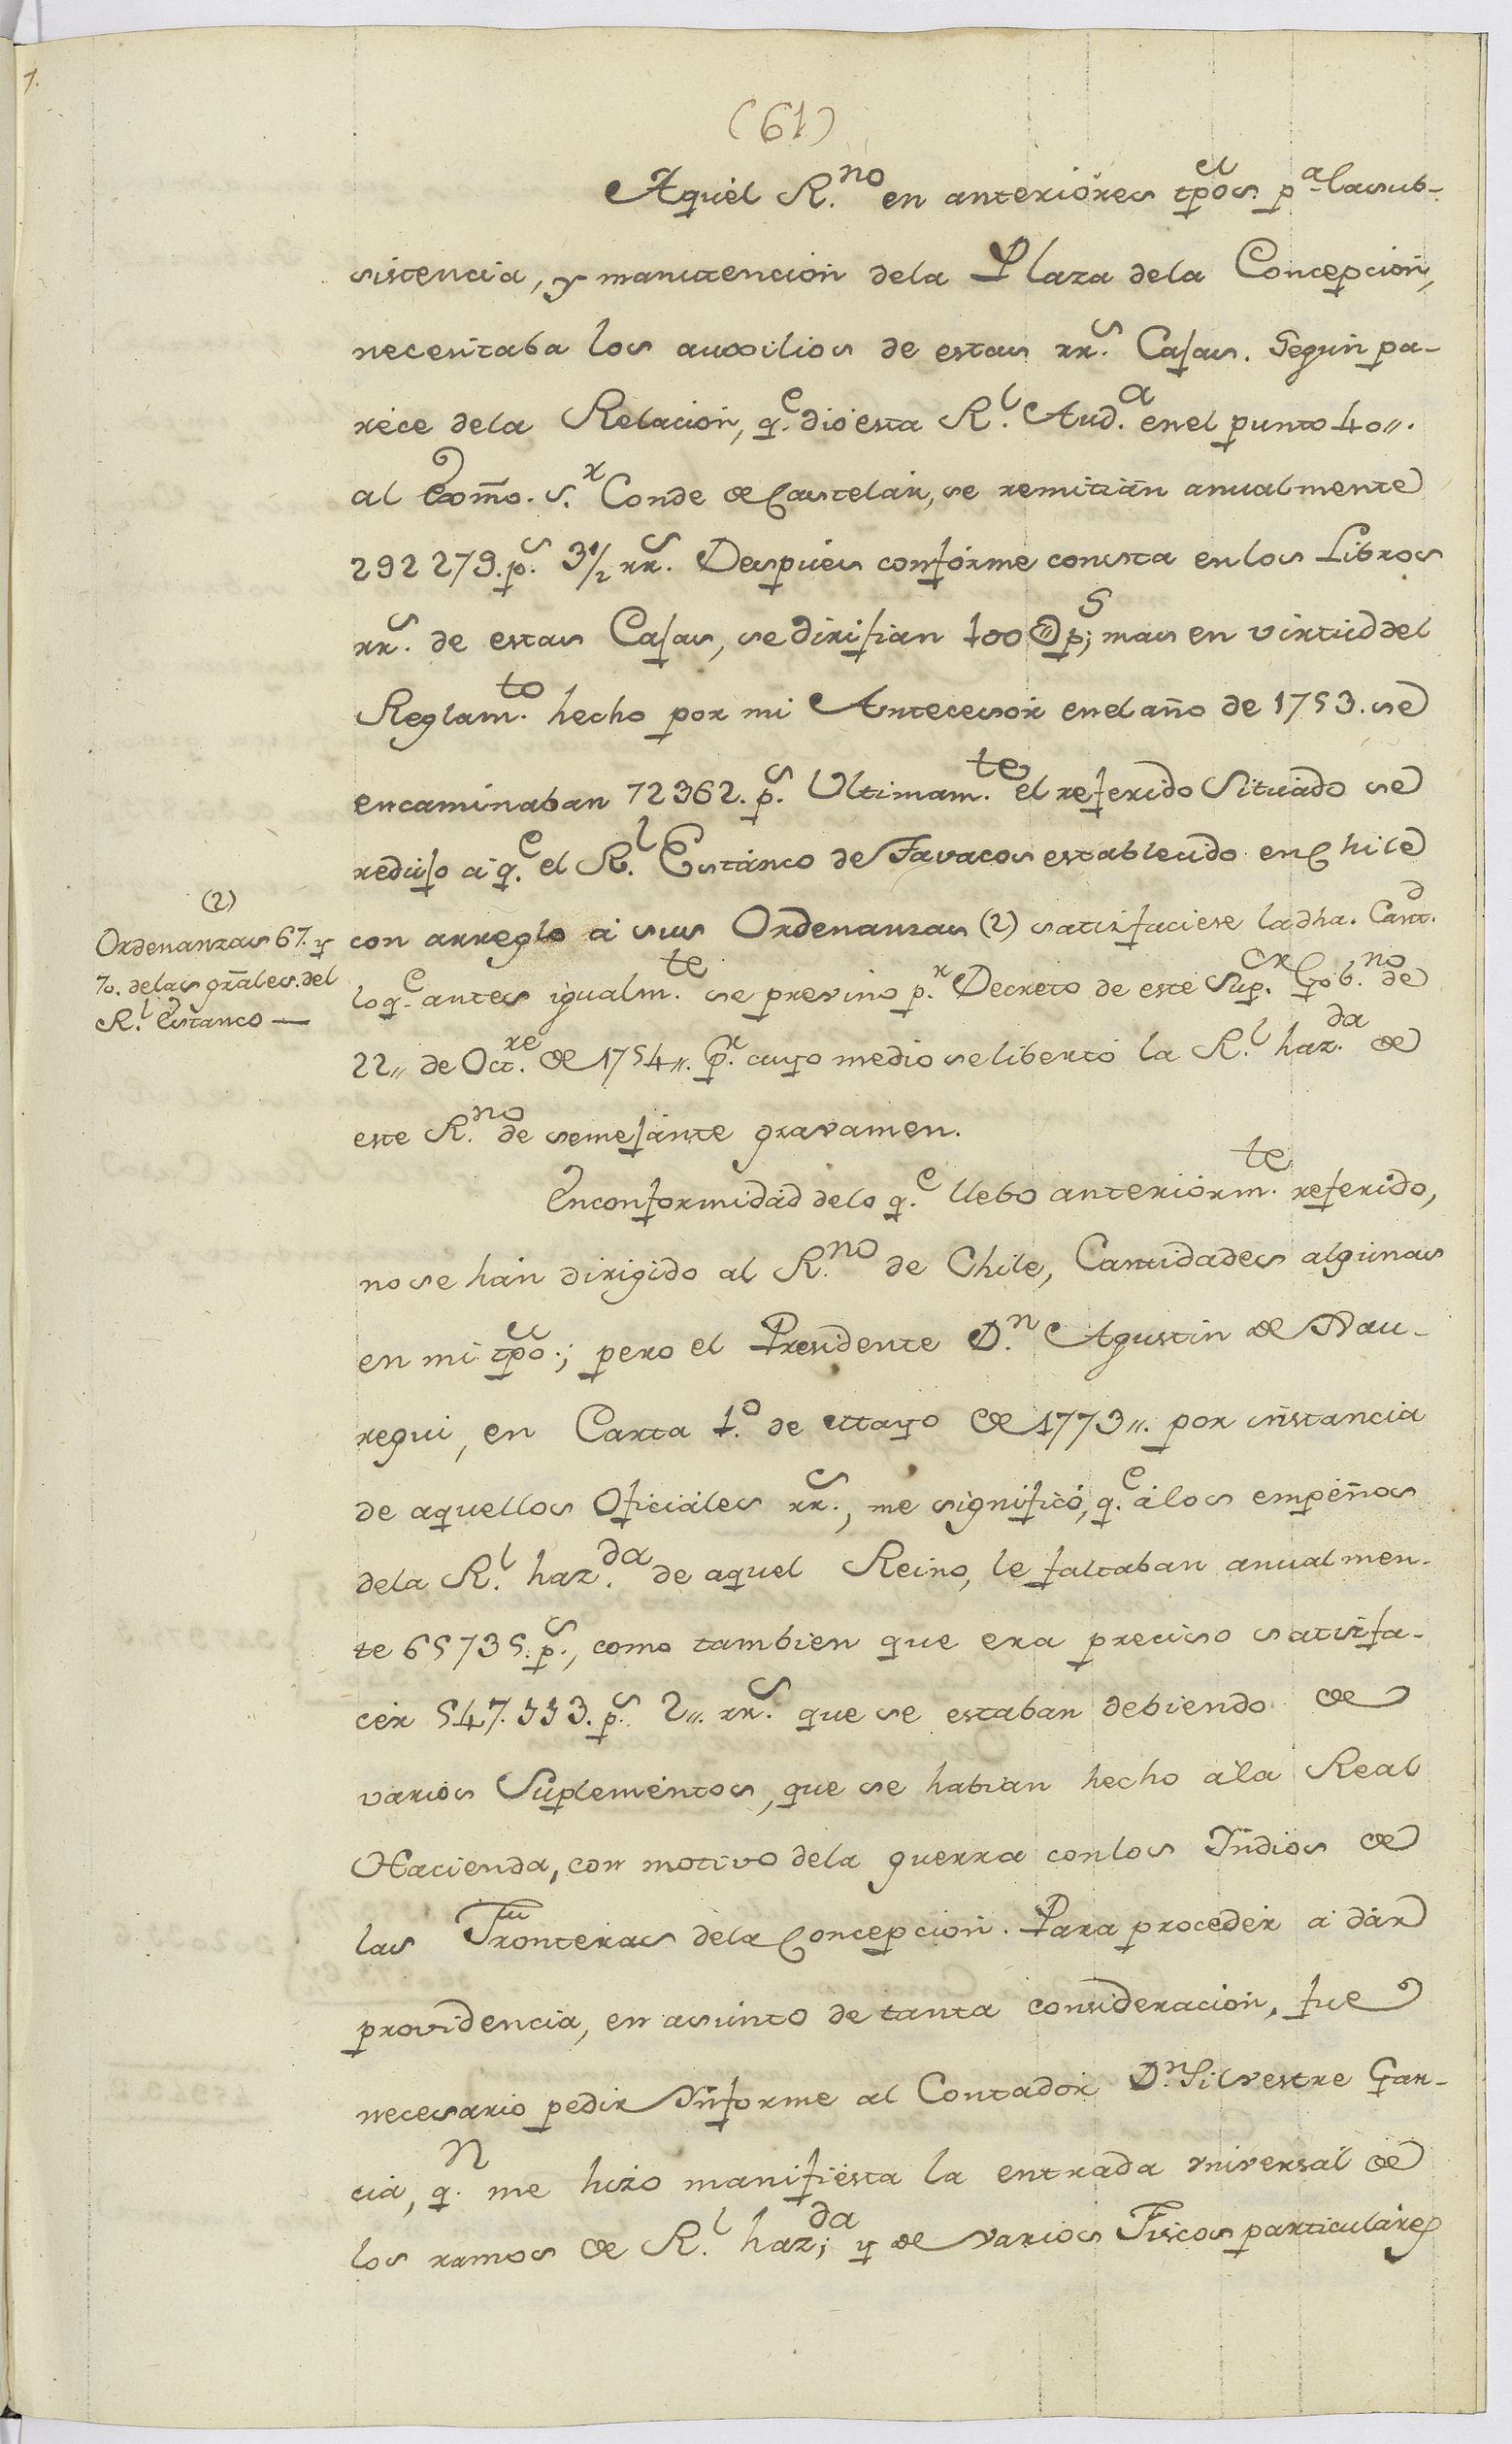 (61)
Aquel R.no en anteriores tpos. p.a la sub-
sistencia, y manutencion dela Plaza dela Concepcion,
necesitaba los auxilios de estas rr.s Cajas. Segun pa-
rece dela Relacion, q.e dió esta R.l Aud.a en el punto 40,,.
al Exmo. S.r Conde de Castelar, se remitian anualmente
292 279. p.s 3 1/2 rr.s Despues conforme consta en los Libros
rr.s de estas Cajas, se dirijian 100 @ p.s; mas en virtud del
Reglam.to hecho por mi Antecesor en el año de 1753. se
encaminaban 72362. p.s Ultimam.te el referido Situado se
redujo á q.e el R.l Estanco de Tavacos establecido en Chile
(2)
Ordenanzas 67. y
70. delas grãles. del
R.l Estanco —
con arreglo á sus Ordenanzas (2) satisfaciese la dha. Cant.d
lo q.e antes igualm.te se previno p.r Decreto de este Sup.or Gob.no de
22,, de Oct.re de 1754,,. P.r cuyo medio se libertó la R.l haz.da de
este R.no de semejante gravamen.
En conformidad de lo q.e llebo anteriorm.te referido,
no se han dirigido al R.no de Chile, Cantidades algunas
en mi tpo.; pero el Presidente D.n Agustin de Jau-
regui, en Carta 1.o de Mayo de 1773,,. por instancia
de aquellos Oficiales rr.s, me significó, q.e á los empeños
dela R.l haz.da de aquel Reino, le faltaban anualmen-
te 65735. p.s, como tambien que era preciso satisfa-
cer 547.333. p.s 2,,. rr.s que se estaban debiendo de
varios Suplementos, que se habian hecho á la Real
Hacienda, con motivo dela guerra con los Indios de
las Fronteras dela Concepcion. Para proceder á dar
providencia, en asunto de tanta consideracion, fue
necesario pedir Informe al Contador D.n Silvestre Gar-
cia, q.n me hizo manifiesta la entrada vniversal de
los ramos de R.l haz.da; y de varios Fiscos particulares